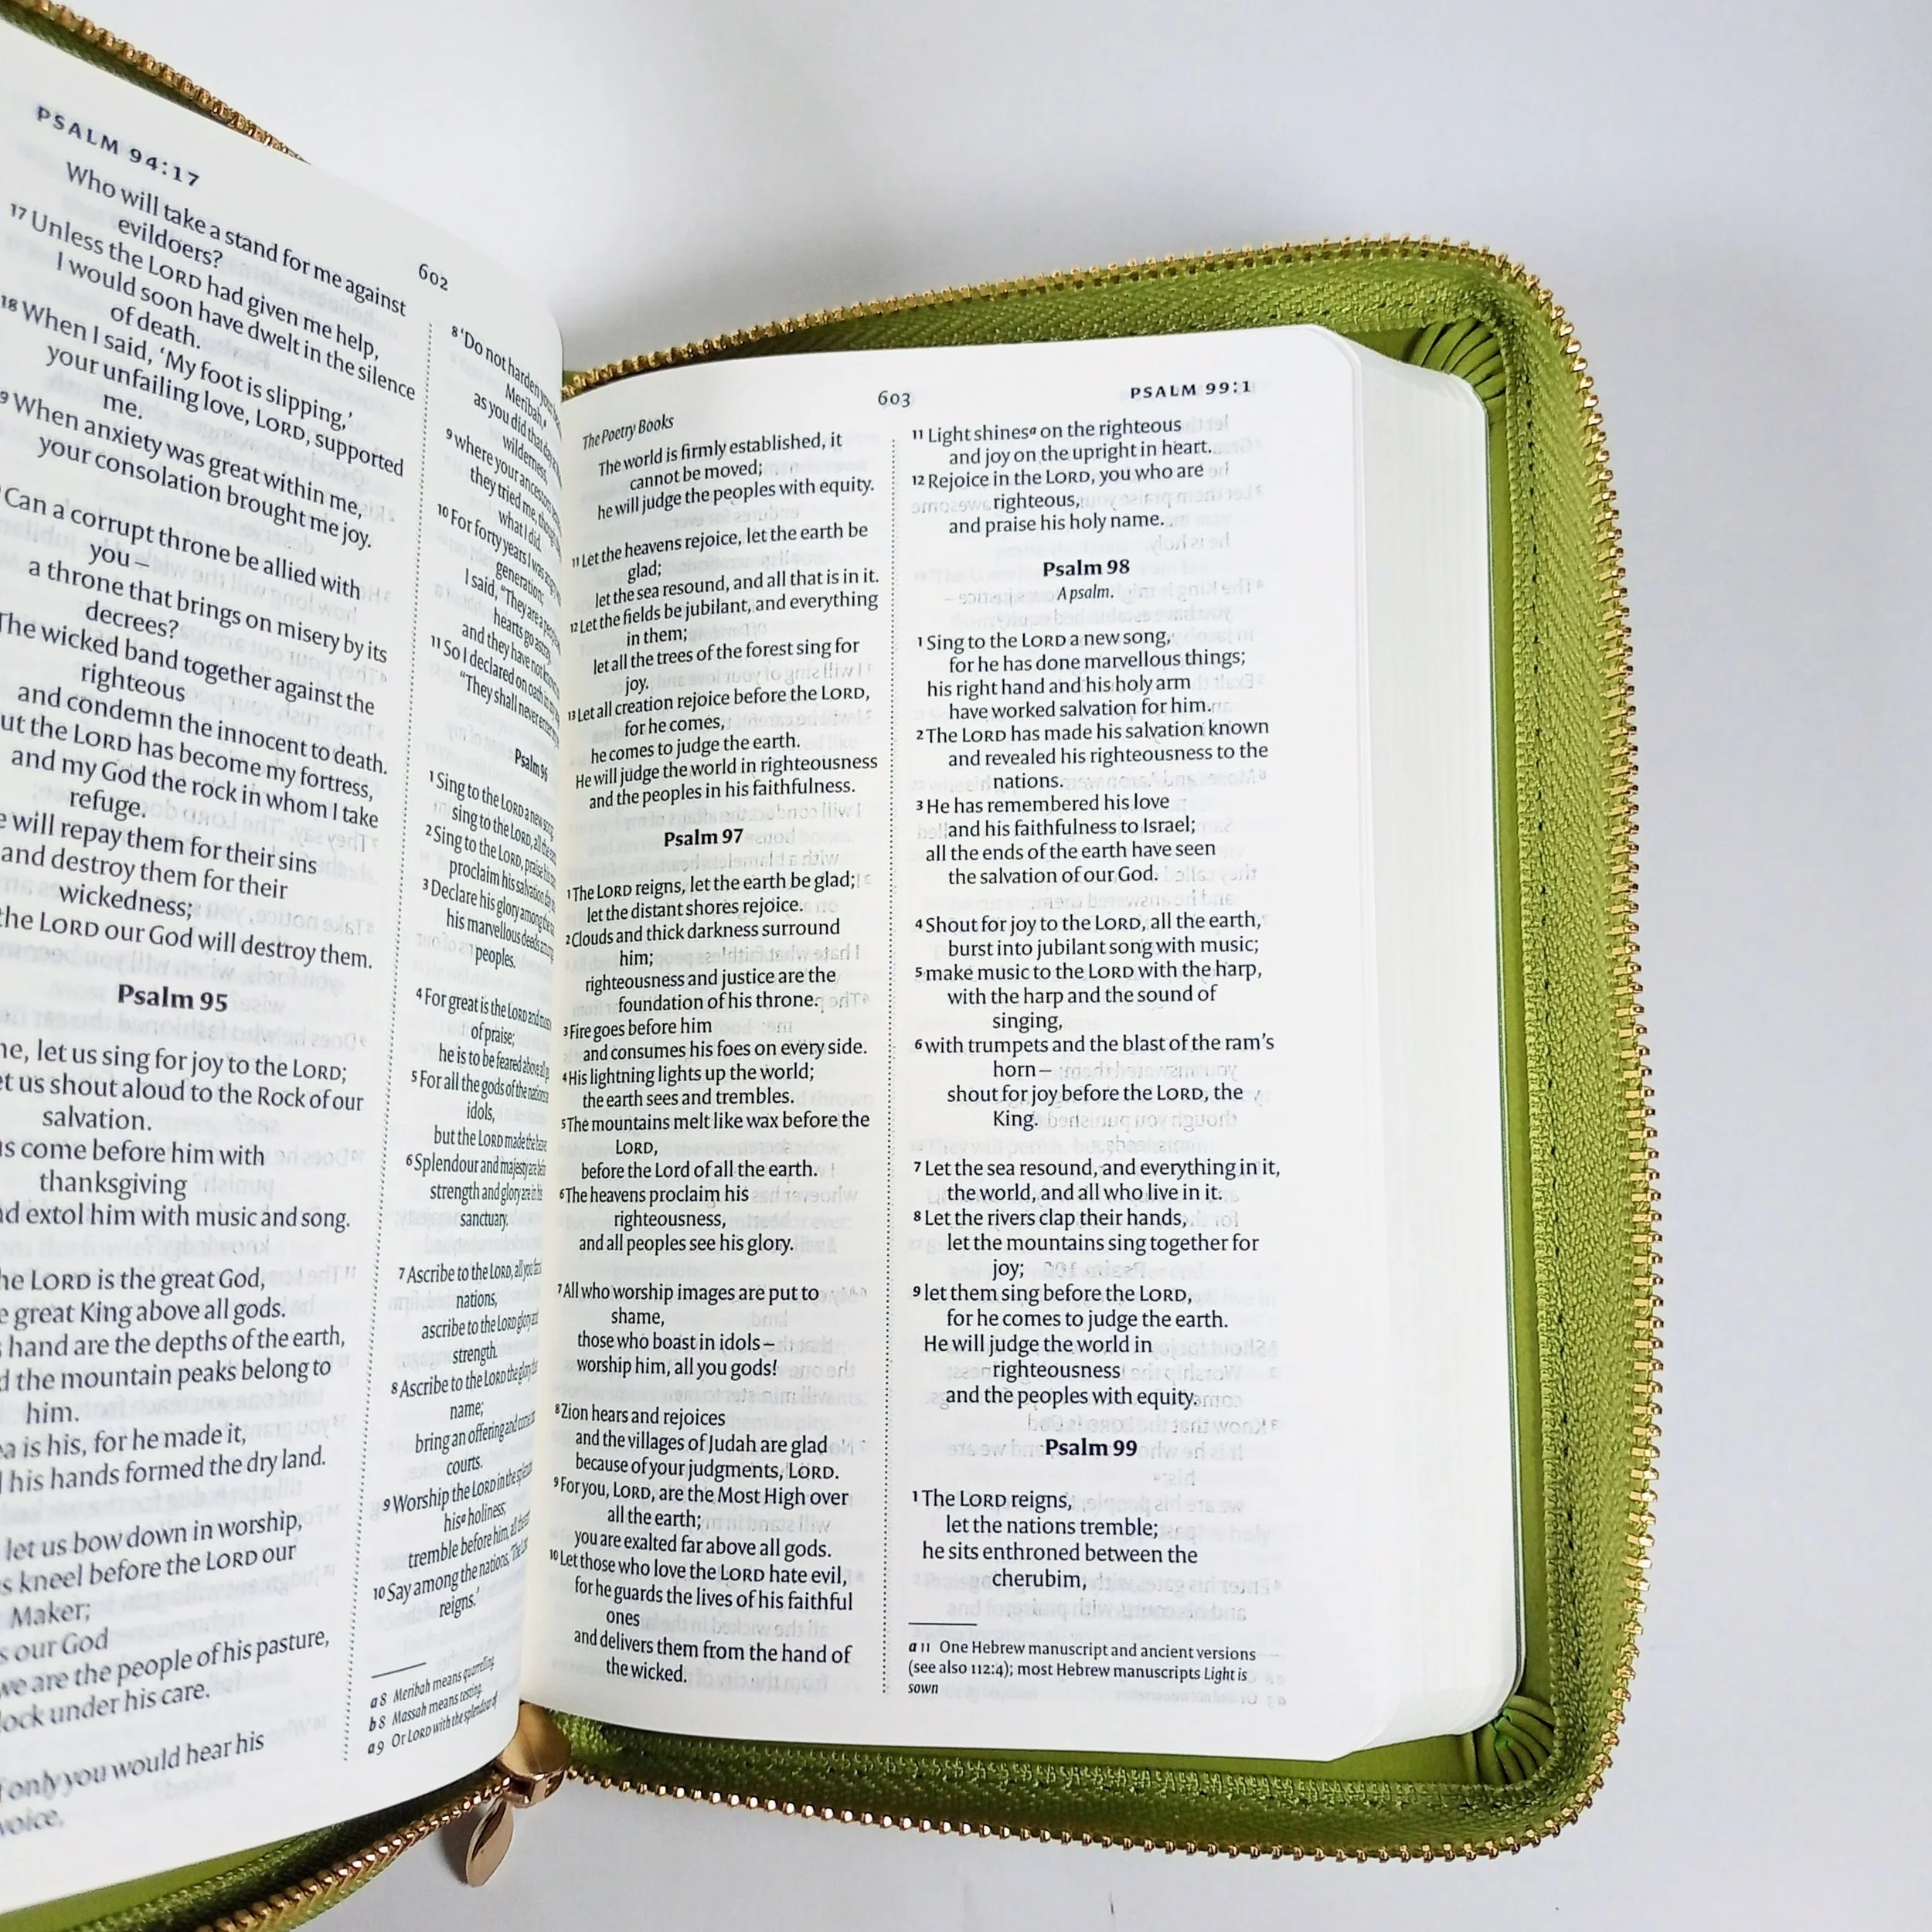 PSALM 94:17
602
Who will take a stand for me against
evildoers?
17 Unless the LORD had given me help,
I would soon have dwelt in the silence
of death.
18 When I said, ‘My foot is slipping,’
your unfailing love, LORD, supported
me.
9 When anxiety was great within me,
your consolation brought me joy.
Can a corrupt throne be allied with
you –
a throne that brings on misery by its
decrees?
The wicked band together against the
righteous
and condemn the innocent to death.
ut the LORD has become my fortress,
and my God the rock in whom I take
refuge.
e will repay them for their sins
and destroy them for their
wickedness;
the LORD our God will destroy them.
Psalm 95
me, let us sing for joy to the LORD;
et us shout aloud to the Rock of our
salvation.
us come before him with
thanksgiving
nd extol him with music and song.
he LORD is the great God,
e great King above all gods.
hand are the depths of the earth,
d the mountain peaks belong to
him.
ea is his, for he made it,
his hands formed the dry land.
let us bow down in worship,
s kneel before the LORD our
Maker;
s our God
we are the people of his pasture,
lock under his care.
only you would hear his
voice,
8 ‘Do not harden
Meribah,
as you did that
wilderness,
9 where your ancestors
they tried me,
what I did.
10 For forty years I was
generation;
I said, “They are a
hearts go
and they have not
11 So I declared on oath
“They shall never
Psalm 96
1 Sing to the LORD a new song
sing to the LORD, all the
2 Sing to the LORD, praise his
proclaim his salvation
3 Declare his glory among the
his marvellous deeds
peoples.
4 For great is the LORD and most
of praise;
he is to be feared above all
5 For all the gods of the nations
idols,
but the LORD made the
6 Splendour and majesty are
strength and glory are in his
sanctuary.
7 Ascribe to the LORD, all you
nations,
ascribe to the LORD glory and
strength.
8 Ascribe to the LORD the glory
name;
bring an offering and
courts.
9 Worship the LORD in the
his a holiness;
tremble before him, all
10 Say among the nations, ‘The
reigns.’
a 8 Meribah means quarrelling
b 8 Massah means testing.
a 9 Or LORD with the splendour of
The Poetry Books
603
PSALM 99:1
The world is firmly established, it
cannot be moved;
he will judge the peoples with equity.
11 Let the heavens rejoice, let the earth be
glad;
let the sea resound, and all that is in it.
12 Let the fields be jubilant, and everything
in them;
let all the trees of the forest sing for
joy.
13 Let all creation rejoice before the LORD,
for he comes,
he comes to judge the earth.
He will judge the world in righteousness
and the peoples in his faithfulness.
Psalm 97
1 The LORD reigns, let the earth be glad;
let the distant shores rejoice.
2 Clouds and thick darkness surround
him;
righteousness and justice are the
foundation of his throne.
3 Fire goes before him
and consumes his foes on every side.
4 His lightning lights up the world;
the earth sees and trembles.
5 The mountains melt like wax before the
LORD,
before the Lord of all the earth.
6 The heavens proclaim his
righteousness,
and all peoples see his glory.
7 All who worship images are put to
shame,
those who boast in idols –
worship him, all you gods!
8 Zion hears and rejoices
and the villages of Judah are glad
because of your judgments, LORD.
9 For you, LORD, are the Most High over
all the earth;
you are exalted far above all gods.
10 Let those who love the LORD hate evil,
for he guards the lives of his faithful
ones
and delivers them from the hand of
the wicked.
11 Light shines a on the righteous
and joy on the upright in heart.
12 Rejoice in the LORD, you who are
righteous,
and praise his holy name.
Psalm 98
A psalm.
1 Sing to the LORD a new song,
for he has done marvellous things;
his right hand and his holy arm
have worked salvation for him.
2 The LORD has made his salvation known
and revealed his righteousness to the
nations.
3 He has remembered his love
and his faithfulness to Israel;
all the ends of the earth have seen
the salvation of our God.
4 Shout for joy to the LORD, all the earth,
burst into jubilant song with music;
5 make music to the LORD with the harp,
with the harp and the sound of
singing,
6 with trumpets and the blast of the ram’s
horn –
shout for joy before the LORD, the
King.
7 Let the sea resound, and everything in it,
the world, and all who live in it.
8 Let the rivers clap their hands,
let the mountains sing together for
joy;
9 let them sing before the LORD,
for he comes to judge the earth.
He will judge the world in
righteousness
and the peoples with equity.
Psalm 99
1 The LORD reigns,
let the nations tremble;
he sits enthroned between the
cherubim,
a 11 One Hebrew manuscript and ancient versions
(see also 112:4); most Hebrew manuscripts Light is
sown